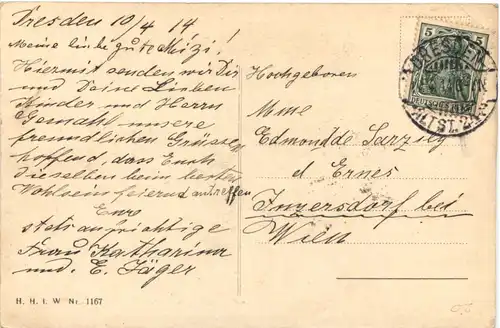 Dresden 10/4 14
Meine liebe gute Mizi!
Hiermit senden wir Dir
und Deine Lieben
Kinder und Herrn
Gemahl unsere
freundlichen Grüsse
hoffend, dass Euch
Dieselben beim besten
Wohlsein feiernd antreffen
Eure
stets aufrichtige
Frau Katharina
und. E. Jäger
H. H. I. W Nr. 1167
Hochgeboren
Mme
Edmond de Sarzily
d Ernes
Inzersdorf bei
Wien
5 5
DRESDEN
DEUTSCHES REICH
ALTST. 24